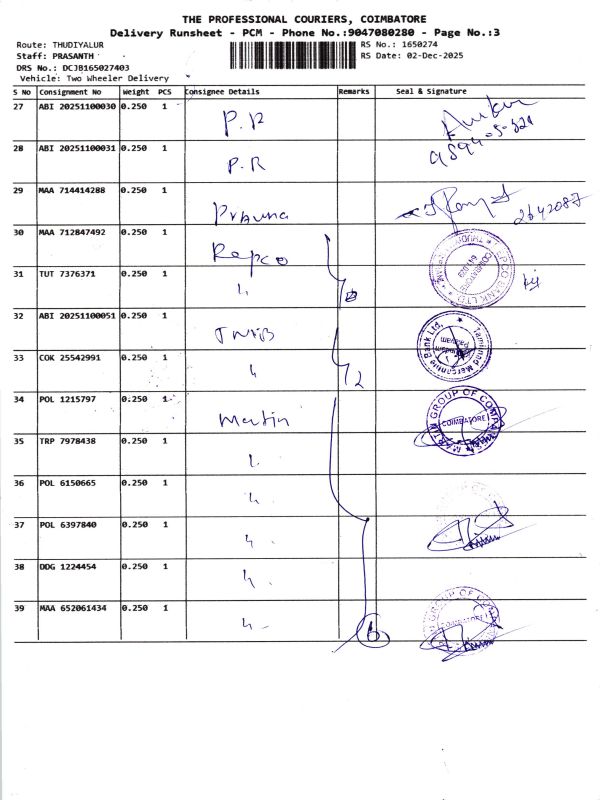 THE PROFESSIONAL COURIERS, COIMBATORE
Delivery Runsheet - PCM - Phone No.:9047080280 - Page No.:3
Route: THUDIYALUR RS No.: 1650274
Staff: PRASANTH RS Date: 02-Dec-2025
DRS No.: DCJB165027403
Vehicle: Two Wheeler Delivery
S No Consignment No Weight PCS Consignee Details Remarks Seal & Signature
27 ABI 20251100030 0.250 1 P.R
28 ABI 20251100031 0.250 1 P.R
29 MAA 714414288 0.250 1 2642087
30 MAA 712847492 0.250 1 Repco
31 TUT 7376371 0.250 1 "
32 ABI 20251100051 0.250 1 TMB
33 COK 25542991 0.250 1 " 2
Tamilnad Mercantile Bank Ltd.
34 POL 1215797 0.250 1 Martin
MARTIN GROUP OF COMPANIES
COIMBATORE
35 TRP 7978438 0.250 1 "
36 POL 6150665 0.250 1 "
37 POL 6397840 0.250 1 "
38 DDG 1224454 0.250 1 "
39 MAA 652061434 0.250 1 " 6
GROUP OF